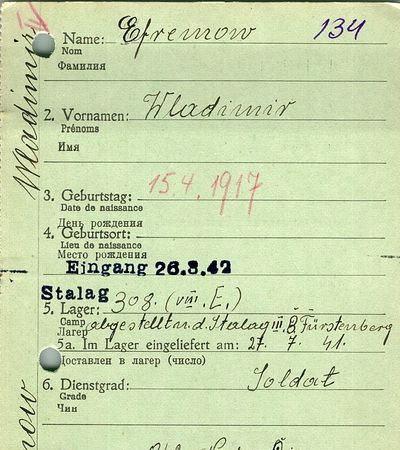 Name: Efremow 134
Nom
Фамилия
Wladimir
2. Vornamen: Wladimir
Prénoms
Имя
3. Geburtstag: 15.4.1917
Date de naissance
День рождения
4. Geburtsort:
Lieu de naissance
Место рождения
Eingang 26.3.42
Stalag
5. Lager: 308. (VIII. E.)
Camp abgestellt n. d. Stalag III B Fürstenberg
Лагерь
5a. Im Lager eingeliefert am: 27. 7. 41.
Доставлен в лагерь (число)
6. Dienstgrad: Soldat
Grade
Чин